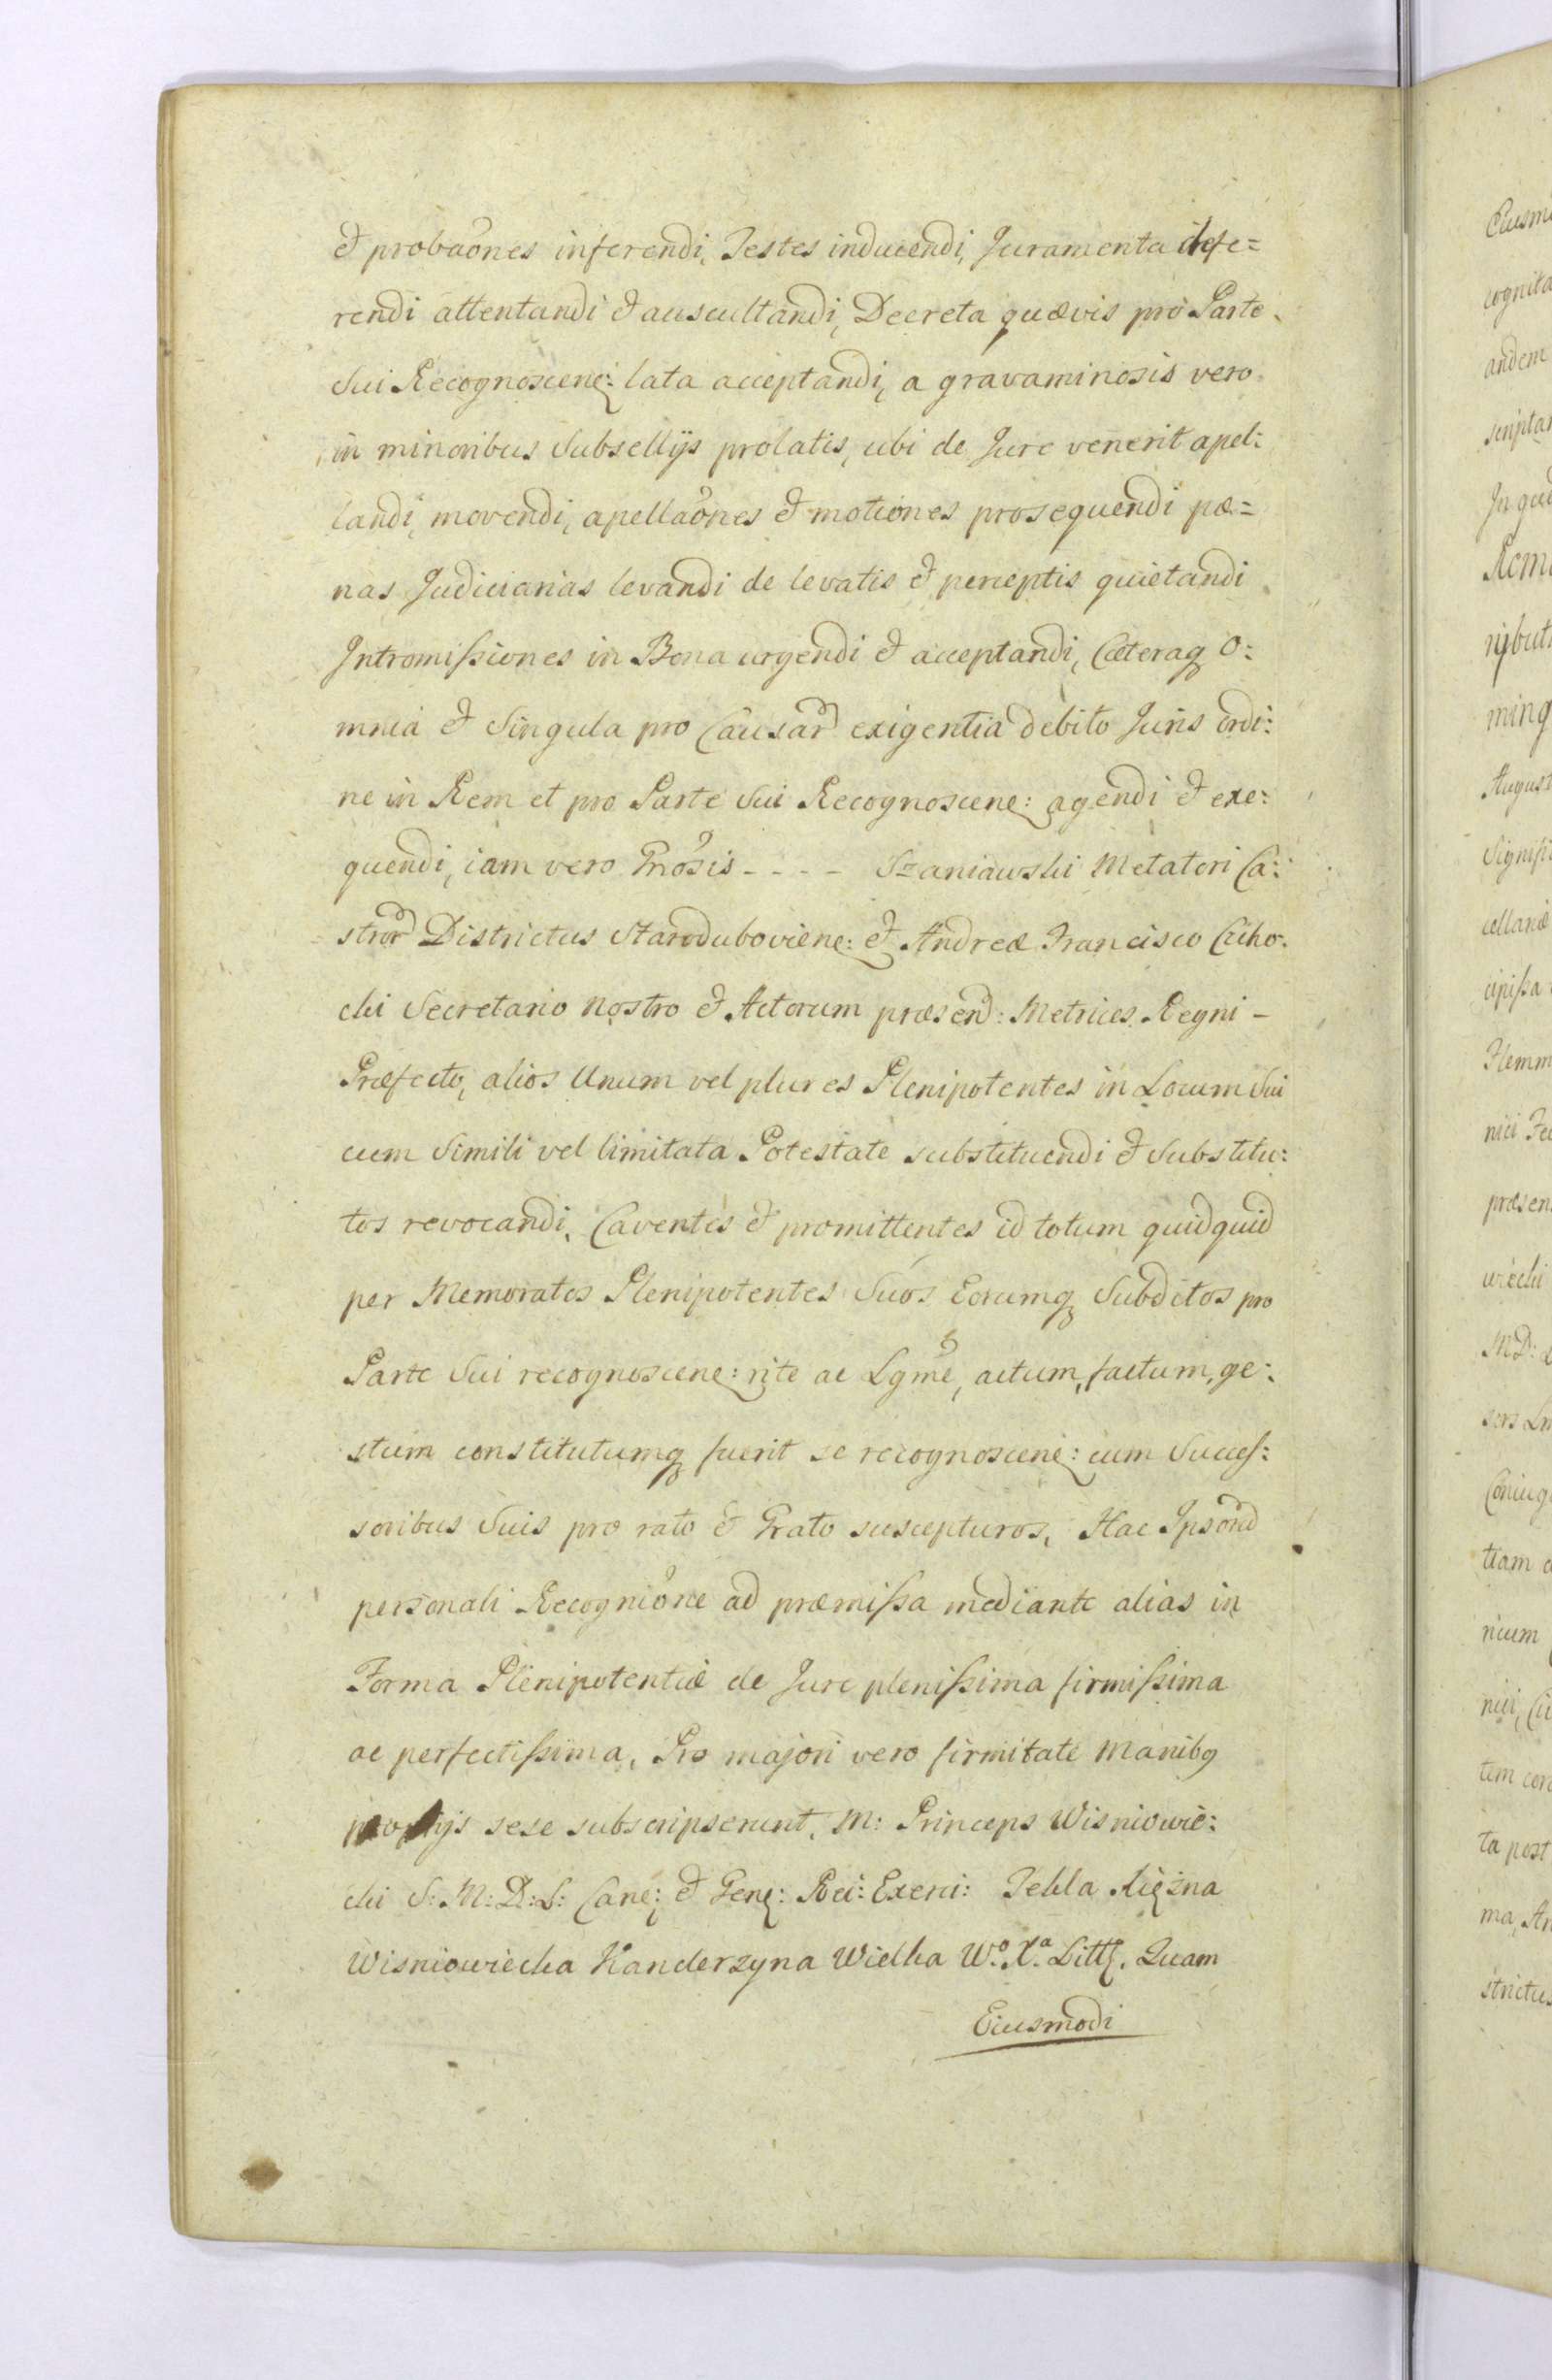 et probaones inferendi, Testes inducendi, Juramenta defe=
rendi attentandi et auscultandi, Decreta quævis pro Parte
Sui Recognoscene: lata acceptandi, a gravaminosis vero
in minoribus Subsellijs prolatis, ubi de Jure venerit apel:
landi, movendi, apellaones et motiones prosequendi pæ=
nas Judiciarias levandi de levatis et perceptis quietandi
Intromissiones in Bona urgendi et acceptandi, Cæteraq O:
mnia et Singula pro Causar exigentia debito Juris ordi:
ne in Rem et pro Parte Sui Recognoscene: agendi et exe:
quendi, iam vero Gnosis - - - - Szaniawski Metatori Ca:
stror Districtus Staroduboviene: et Andreæ Francisco Cicho:
cki Secretario Nostro et Actorum præsend: Metrices Regni -
Præfecto, alios Unum vel plures Plenipotentes in Locum Sui
cum Simili vel limitata Potestate substituendi et Substitu:
tos revocandi, Caventes et promittentes id totum quidquid
per Memoratos Plenipotentes Suos Eorumq Subditos pro
Parte Sui recognoscene: rite ac Lgme, actum, factum, ge:
stum constitutumq fuerit se recognoscene: cum Succes:
soribus Suis pro rato et Grato suscepturos, Hac Ipsor
personali Recognione ad præmissa mediante alias in
Forma Plenipotentiæ de Jure plenissima firmissima
ac perfectissima, Pro majori vero firmitate Manibq
proprijs sese subscripserunt, M: Princeps Wisniowie:
cki S: M: D: L: Canc: et Gene: Rei: Exerci: Tekla Xiężna
Wisniowiecka Kanclerzyna Wielka W.º X.ª Litt. Quam
Eiusmodi